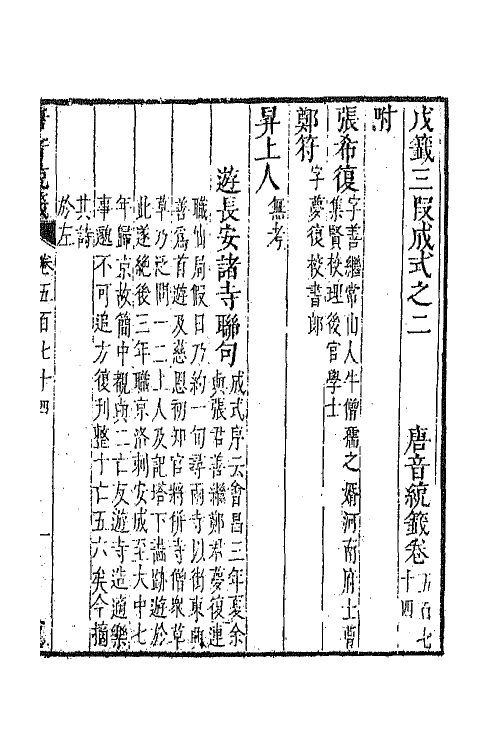 戊籤三段成式之二　唐音統籤卷五百七十四
附
張希復字善繼常山人牛僧孺之婿河南府士曹
集賢校理後官學士
鄭符字夢復校書郎
昇上人無考
遊長安諸寺聯句成式序云會昌三年夏余
與張君善繼鄭君夢復連
職仙局假日乃約一旬尋兩寺以街東興
善爲首遊及慈恩初知官將併寺僧衆草
草乃泛問一二上人及記塔下畫跡遊於
此遂絶後三年職京洛刺安成至大中七
年歸京故簡中覩與二亡友遊寺造適樂
事邈不可追方復刋整十亡五六矣今摘
其詩
於左
唐音統籤　卷五百七十四　一